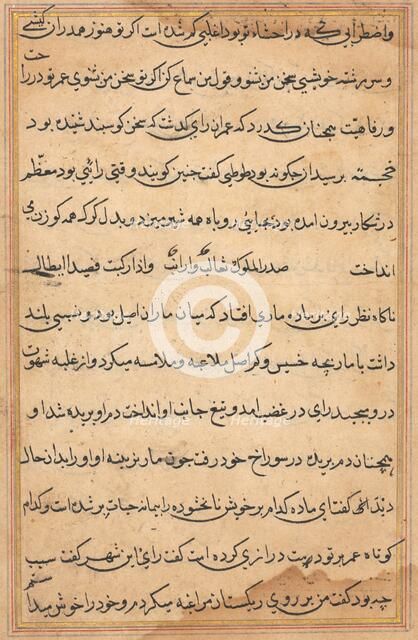 واضطرابی که در احشاء تو بود اغلبی کم شده است اکر تو هنوز همدران کیشی
و سر رشته خویشی سخن من شنو و قول من سماع کن کر تو سخن من شنوی عمر تو در راحت
و رفاهیت همچنان کذرد که عمر ان رای کذشت که سخن کوسبند شنیده بود
خجسته پرسید ان چکونه بود طوطی کفت چنین کویند وقتی رائی بود معظم
در شکار بیرون امده بود بهای روباه همه شیر میزد و بدل کرک همه کوزن می
انداخت صدر الملوک ثعالب وارانب واذا رکبت فصیدا ابطال
ناکاه نظر رای بر ماده ماری افتاد که میان ماران اصیل بود و نسبی بلند
داشت با مار بچه خسیس و کم اصل ملاعبه و ملامسه میکرد و از غلبه شهوت
در و می‌پیچید رای در غضب امد و تیغ جانب او انداخت دم او بریده شد او
همچنان دم بریده در سوراخ خود رفت چون مار نرینه او او را بدان حال
دید کفت ای ماده کدام بر خویش نابخشوده را پیمانه حیات پر شده است و کدام
کوتاه عمر بر تو دست درازی کرده است کفت رای این شهر کفت سبب
چه بود کفت من بر روی ریکستان مراغه میکردم و خود را خوش میداشتم